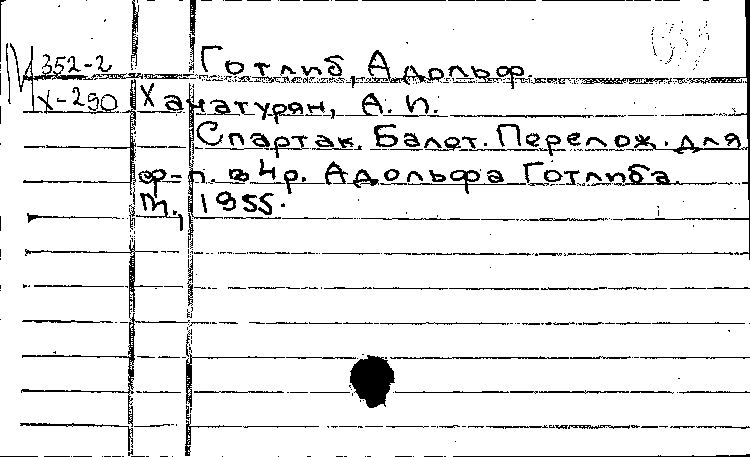 М 352-2 Готлиб, Адольф.
Х-290 Хачатурян, А. И.
Спартак. Балет. Перелож. для
ф-п. в 4 р. Адольфа Готлиба.
М., 1955.